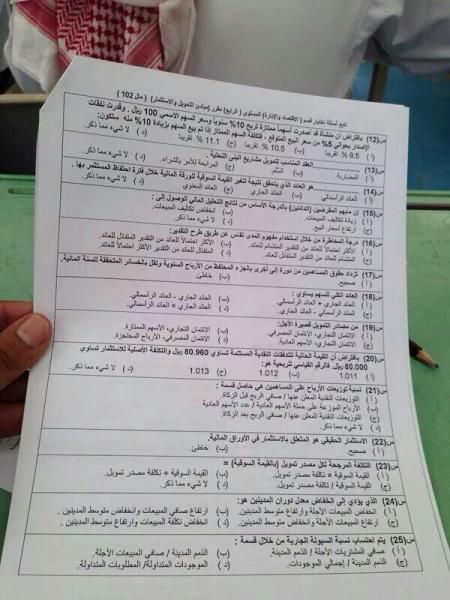 تابع أسئلة إختبار قسم ( الاقتصاد والإدارة) المستوى ( الرابع) مقرر (مبادئ التمويل والاستثمار) ( مال 102 )
س(12) بافتراض أن منشأة قد أصدرت أسهما ممتازة تربح 10% سنويا وسعر السهم الاسمي 100 ريال ، وقدرت نفقات
الإصدار بحوالي 5% من سعر البيع المتوقع ، فتكلفة السهم الممتاز إذا تم بيع السهم بزيادة 10% منه ستكون:
( أ ) 9.5 % تقريبا (ب) 10.5 % تقريبا (ج) 11.1 % تقريبا ( د) لا شيء مما ذكر.
س(13) ............ العقد المناسب لتمويل مشاريع البنى التحتية
( أ ) المضاربة. (ب) السلم. (ج) المرابحة للآمر بالشراء. ( د) لا شيء مما ذكر.
س(14) ............هو العائد الذي يتحقق نتيجة لتغير القيمة السوقية للورقة المالية خلال فترة احتفاظ المستثمر بها .
( أ ) العائد الرأسمالي (ب) العائد الجاري (ج) العائد المعنوي ( د) لا شيء مما ذكر.
س(15) إن مايهم المقرضين (الدائنين) بالدرجة الأساس من نتائج التحليل المالي الوصول إلى :
( أ ) زيادة تكاليف المبيعات. (ب) انخفاض تكاليف المبيعات.
(ج) ارتفاع أسعار البيع. ( د) لا شيء مما ذكر.
س(16) درجة المخاطرة من خلال استخدام مفهوم المدى تقاس عن طريق طرح التقدير:
( أ ) المتشائم للعائد من التقدير المتفائل للعائد. (ب) الأكثر احتمالاً للعائد من التقدير المتفائل للعائد.
(ج) المتشائم للعائد من التقدير الأكثر احتمالاً للعائد. ( د)
س(17) تزداد حقوق المساهمين من دورة إلى أخرى بالجزء المحتفظ من الأرباح السنوية وتقل بالخسائر المتحققة للسنة المالية.
( أ ) صحيح. (ب) خاطئ.
س(18) العائد الكلي للسهم يساوي :
( أ ) العائد الجاري + العائد الرأسمالي. (ب) العائد الجاري - العائد الرأسمالي.
(ج) العائد الرأسمالي - العائد الجاري. ( د) العائد الجاري × العائد الرأسمالي.
س(19) من مصادر التمويل قصيرة الأجل:
( أ ) الائتمان التجاري، الائتمان المصرفي. (ب) الائتمان التجاري، الأسهم الممتازة.
(ج) الائتمان التجاري، الأسهم العادية. ( د) الائتمان المصرفي، الأرباح المحتجزة.
س(20) بافتراض أن القيمة الحالية للتدفقات النقدية المستثمة تساوي 80.960 ريال ، والتكلفة الأصلية للاستثمار تساوي
80.000 ريال، فالرقم القياسي للربحية هو:
( أ ) 1.011 (ب) 1.012 (ج) 1.013 ( د) لا شيء مما ذكر.
س(21) نسبة توزيعات الأرباح على المساهمين هي حاصل قسمة :
( أ ) التوزيعات النقدية المعلن عنها / صافي الربح قبل الزكاة.
(ب) الأرباح الموزعة على حملة الأسهم العادية / عدد الأسهم العادية
(ج) التوزيعات النقدية المعلن عنها / صافي الربح بعد الزكاة.
( د) لا شيء مما ذكر.
س(22) الاستثمار الحقيقي هو المتعلق بالاستثمار في الأوراق المالية.
( أ ) صحيح. (ب) خاطئ.
س(23) التكلفة المرجحة لكل مصدر تمويل (بالقيمة السوقية) =
( أ ) القيمة السوقية × تكلفة مصدر تمويل. (ب) القيمة السوقية + تكلفة مصدر تمويل.
(ج) القيمة السوقية / تكلفة مصدر تمويل. ( د) لا شيء مما ذكر.
س(24) الذي يؤدي إلى انخفاض معدل دوران المدينين هو:
( أ ) انخفاض المبيعات الآجلة وارتفاع متوسط المدينين. (ب) ارتفاع صافي المبيعات وانخفاض متوسط المدينين .
(ج) ارتفاع المبيعات الآجلة وانخفاض متوسط المدينين. ( د) انخفاض تكلفة المبيعات وارتفاع متوسط المدينين .
س(25) يتم احتساب نسبة السيولة الجارية من خلال قسمة :
( أ ) صافي المشتريات الآجلة / الذمم المدينة. (ب) الذمم المدينة / صافي المبيعات الآجلة.
(ج) الذمم المدينة / إجمالي الموجودات. ( د) الموجودات المتداولة/ المطلوبات المتداولة.